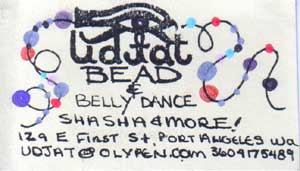 Udjat
BEAD
&
BELLY DANCE
SHASHA & MORE!
129 E FIRST St. PORT ANGELES Wa
UDJAT@OLYPEN.COM 3604175489